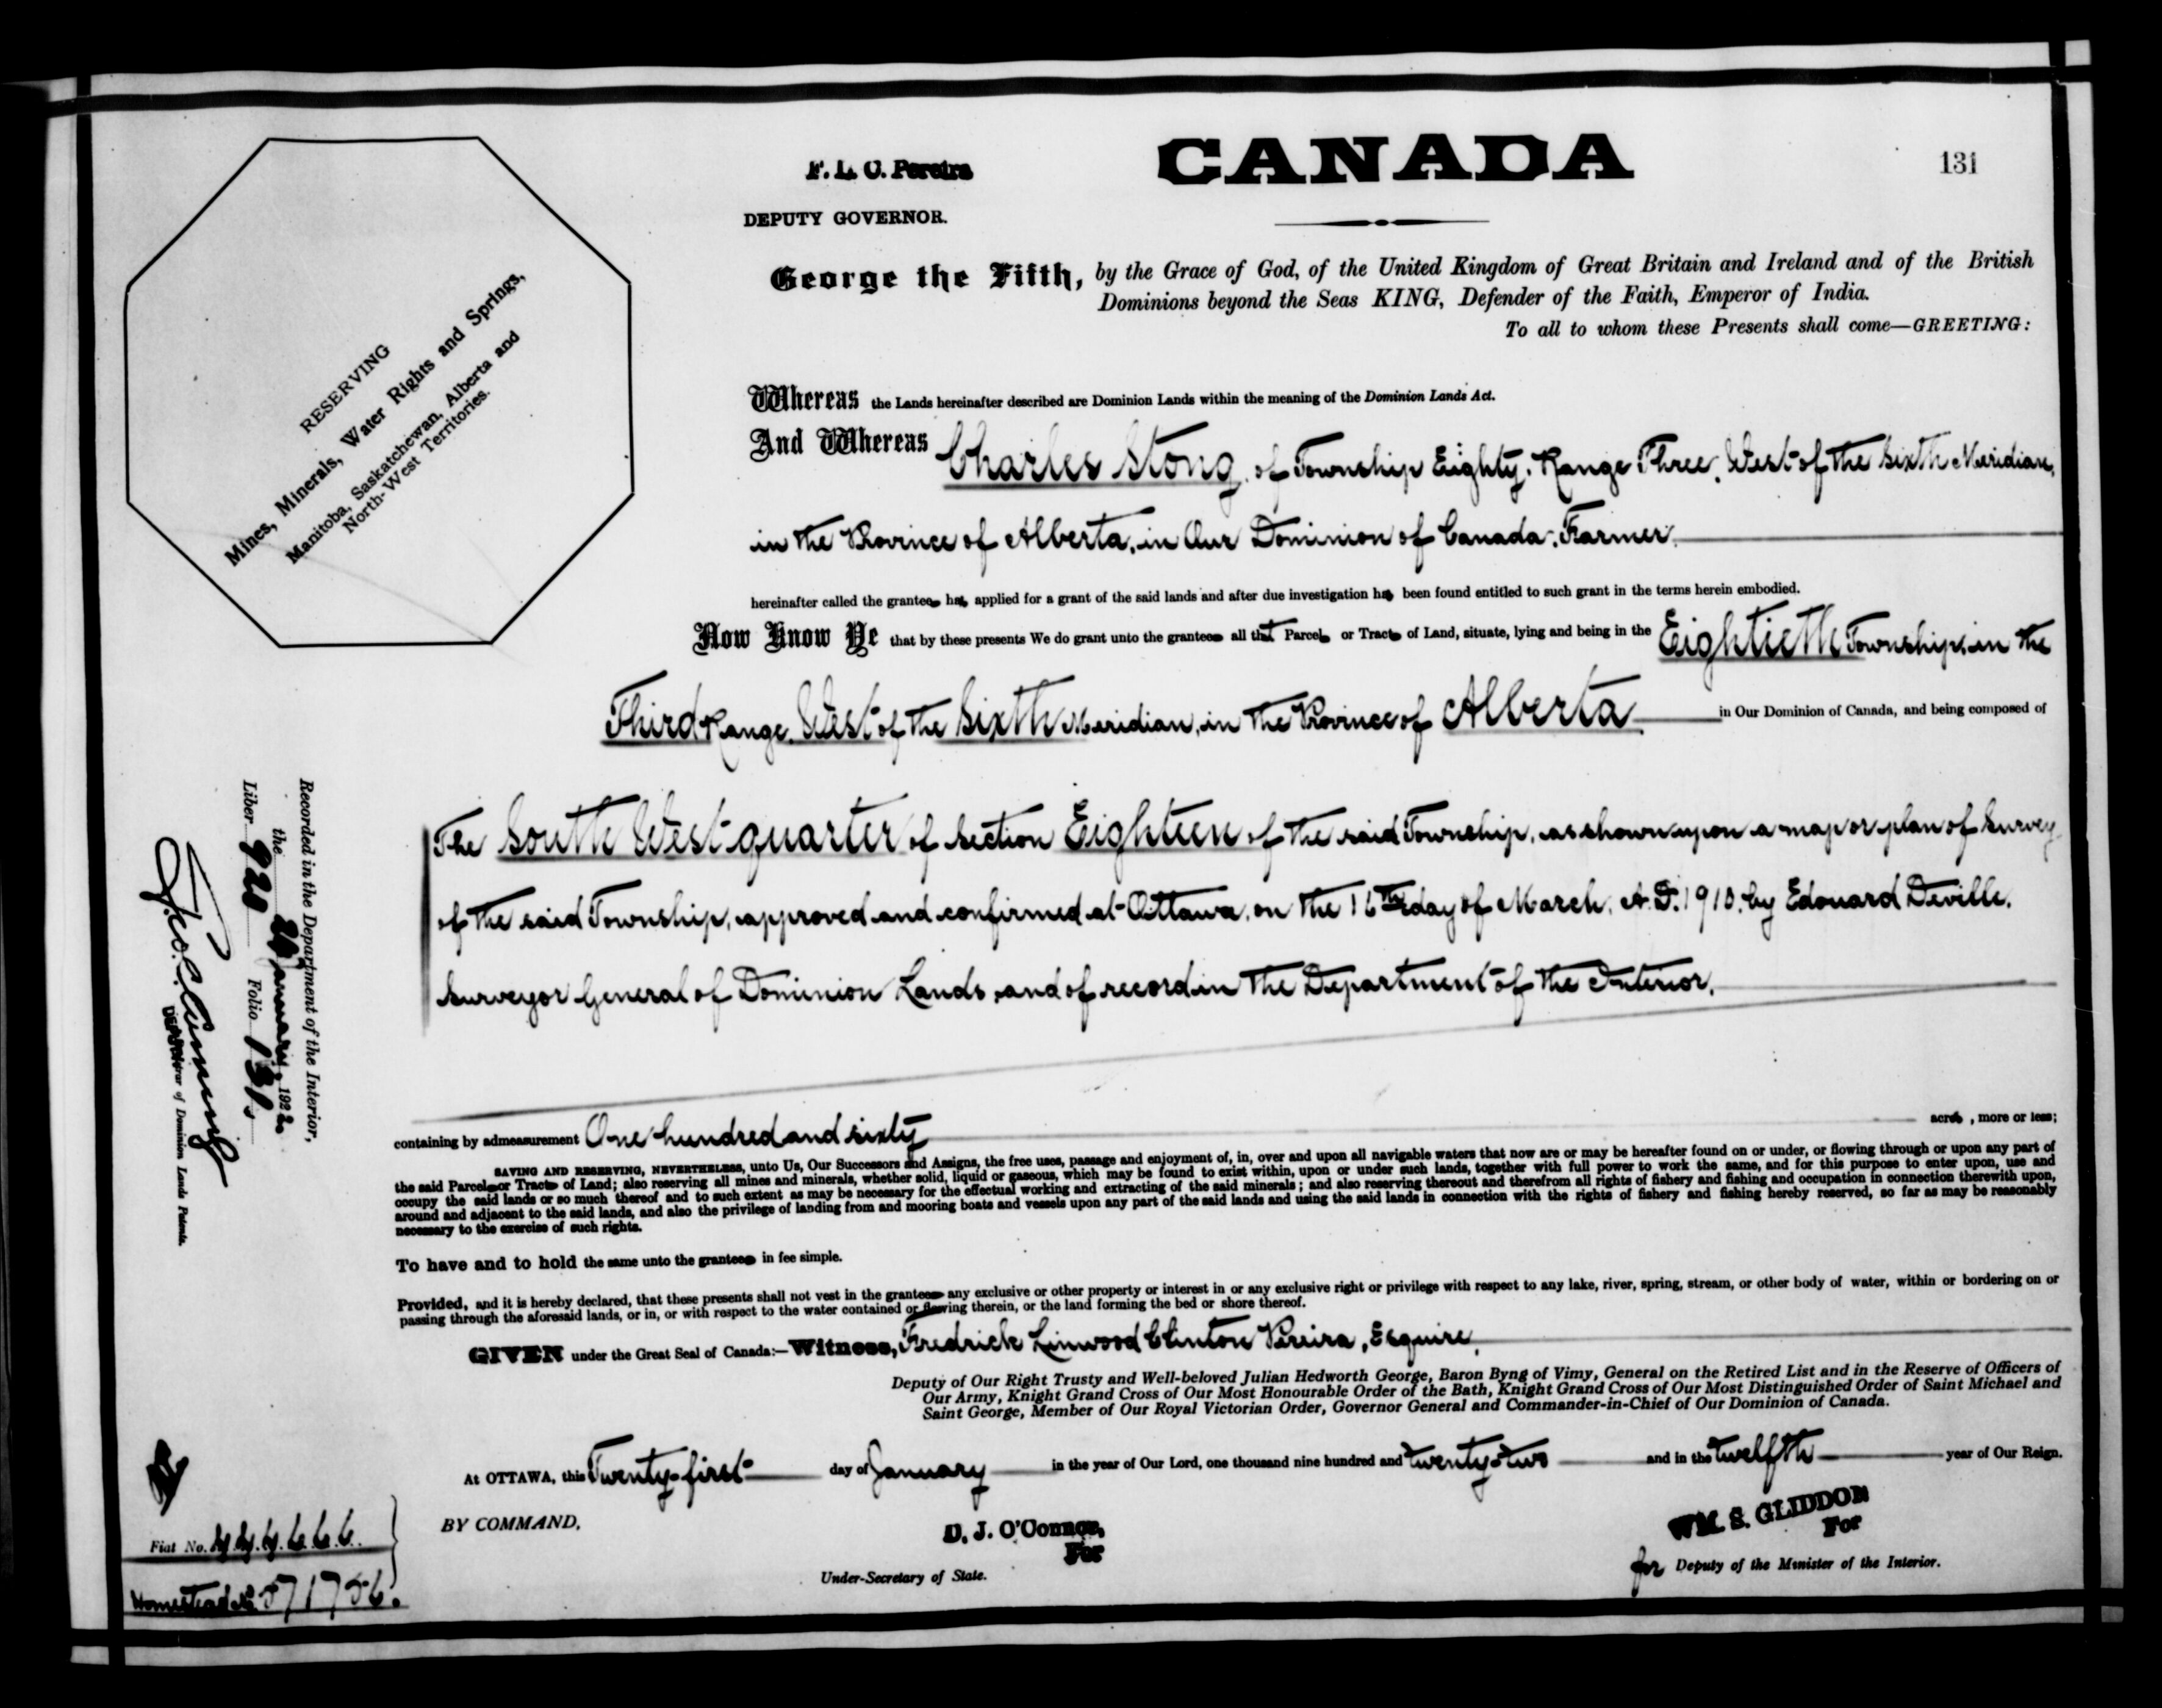 F. L. C. Pereira
CANADA
131
DEPUTY GOVERNOR.
George the Fifth, by the Grace of God, of the United Kingdom of Great Britain and Ireland and of the British
Dominions beyond the Seas KING, Defender of the Faith, Emperor of India.
To all to whom these Presents shall come—GREETING:
RESERVING
Mines, Minerals, Water Rights and Springs,
Manitoba, Saskatchewan, Alberta and
North-West Territories.
Whereas the Lands hereinafter described are Dominion Lands within the meaning of the Dominion Lands Act.
And Whereas Charles Stong, of Township Eighty, Range Three, West of the Sixth Meridian,
in the Province of Alberta, in Our Dominion of Canada, Farmer,
hereinafter called the grantee has applied for a grant of the said lands and after due investigation has been found entitled to such grant in the terms herein embodied.
Now Know Ye that by these presents We do grant unto the grantee all that Parcel or Tract of Land, situate, lying and being in the Eightieth Township, in the
Third Range, West of the Sixth Meridian, in the Province of Alberta in Our Dominion of Canada, and being composed of
The South West quarter of Section Eighteen of the said Township, as shown upon a map or plan of Survey
of the said Township, approved and confirmed at Ottawa, on the 16th day of March, A.D. 1910, by Edouard Deville,
Surveyor General of Dominion Lands, and of record in the Department of the Interior,
containing by admeasurement One hundred and sixty acres, more or less;
SAVING AND RESERVING, NEVERTHELESS, unto Us, Our Successors and Assigns, the free uses, passage and enjoyment of, in, over and upon all navigable waters that now are or may be hereafter found on or under, or flowing through or upon any part of
the said Parcel or Tract of Land; also reserving all mines and minerals, whether solid, liquid or gaseous, which may be found to exist within, upon or under such lands, together with full power to work the same, and for this purpose to enter upon, use and
occupy the said lands or so much thereof and to such extent as may be necessary for the effectual working and extracting of the said minerals; and also reserving thereout and therefrom all rights of fishery and fishing and occupation in connection therewith upon,
around and adjacent to the said lands, and also the privilege of landing from and mooring boats and vessels upon any part of the said lands and using the said lands in connection with the rights of fishery and fishing hereby reserved, so far as may be reasonably
necessary to the exercise of such rights.
To have and to hold the same unto the grantee in fee simple.
Provided, and it is hereby declared, that these presents shall not vest in the grantee any exclusive or other property or interest in or any exclusive right or privilege with respect to any lake, river, spring, stream, or other body of water, within or bordering on or
passing through the aforesaid lands, or in, or with respect to the water contained or flowing therein, or the land forming the bed or shore thereof.
GIVEN under the Great Seal of Canada:—Witness, Fredrick Linwood Clinton Pereira, Esquire,
Deputy of Our Right Trusty and Well-beloved Julian Hedworth George, Baron Byng of Vimy, General on the Retired List and in the Reserve of Officers of
Our Army, Knight Grand Cross of Our Most Honourable Order of the Bath, Knight Grand Cross of Our Most Distinguished Order of Saint Michael and
Saint George, Member of Our Royal Victorian Order, Governor General and Commander-in-Chief of Our Dominion of Canada.
At OTTAWA, this Twenty-first day of January in the year of Our Lord, one thousand nine hundred and twenty-two and in the twelfth year of Our Reign.
BY COMMAND,
D. J. O'Connor,
For
Under-Secretary of State.
WM. S. GLIDDON
For
for Deputy of the Minister of the Interior.
Recorded in the Department of the Interior,
the January, 1922
Liber 920 Folio 131.
Registrar of Dominion Lands Patents.
Fiat No.
Homestead No. 571756.